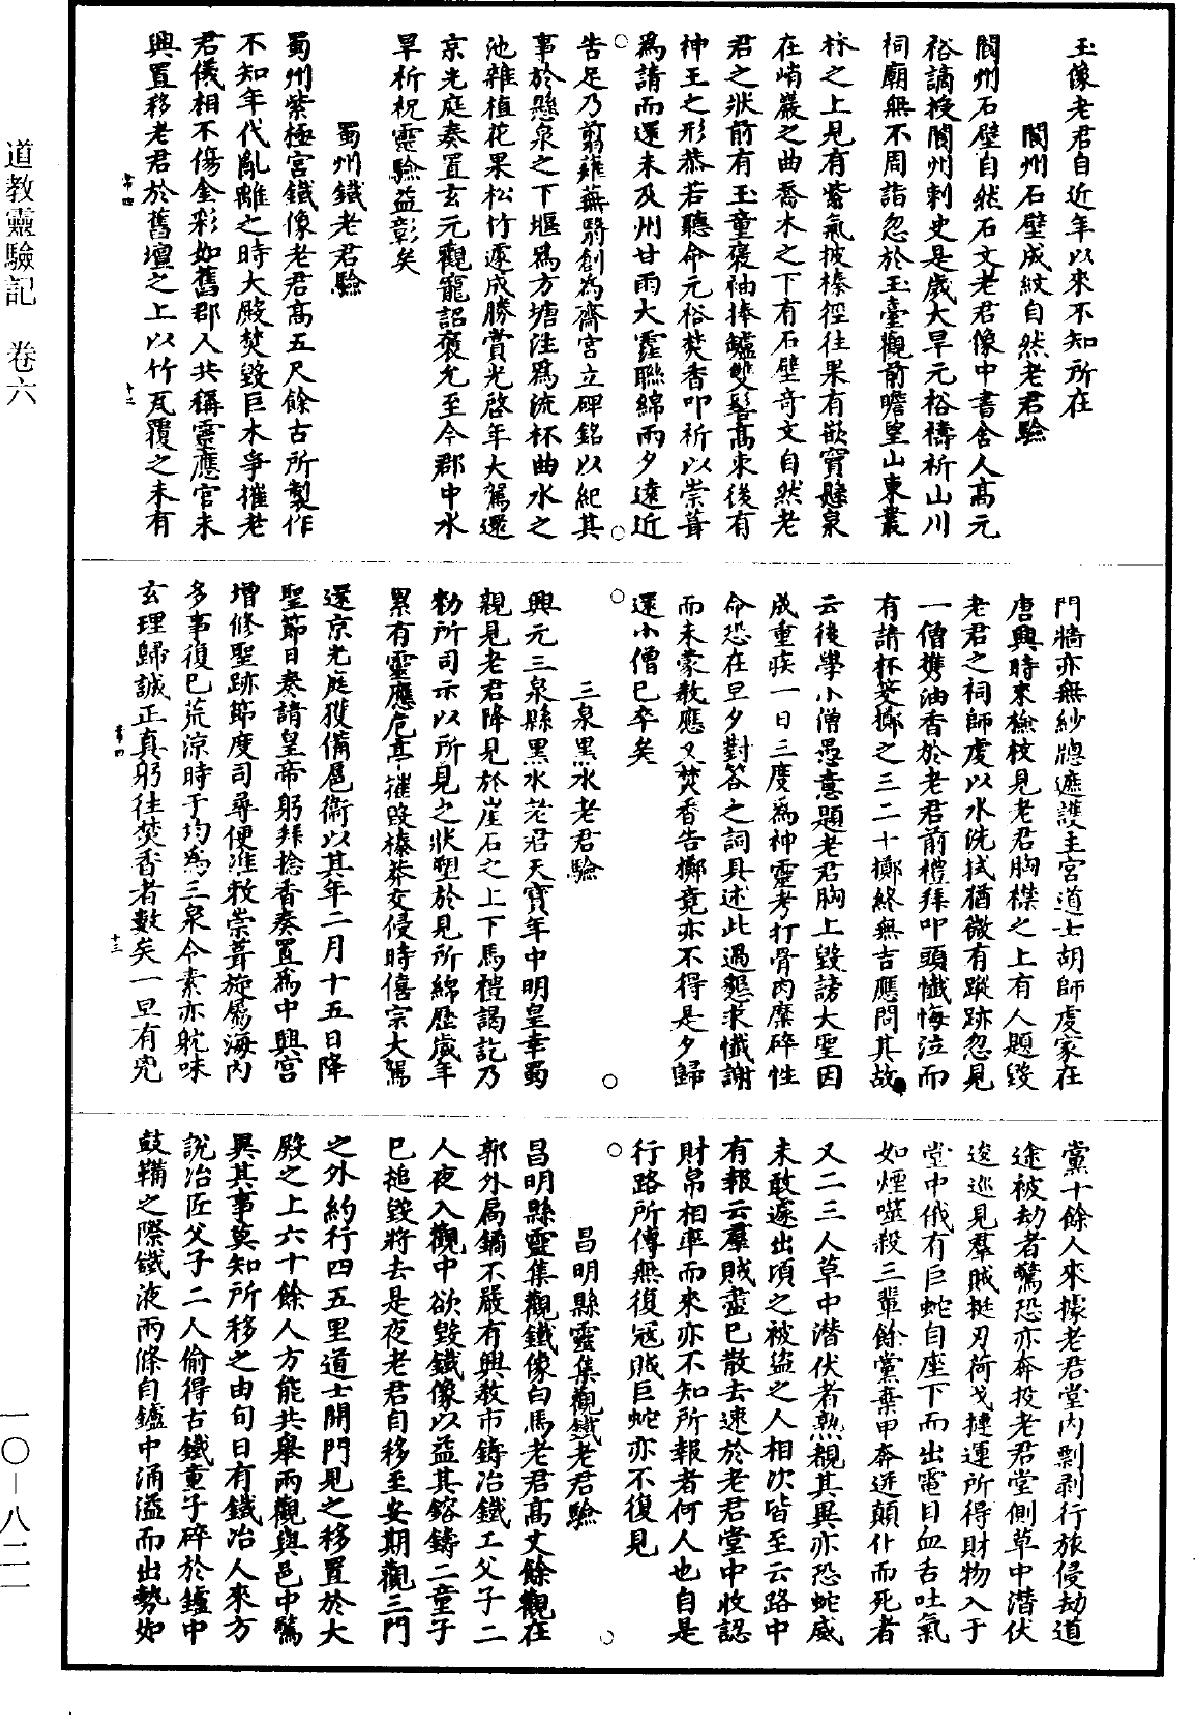 玉像老君自近年以來不知所在
閬州石壁成紋自然老君驗
閬州石壁自然石文老君像中書舍人高元
裕謫授閬州刺史是歲大旱元裕禱祈山川
祠廟無不周詣忽於玉臺觀前瞻望山東叢
林之上見有紫氣披榛徑往果有嵌竇懸泉
在峭巖之曲喬木之下有石壁奇文自然老
君之狀前有玉童褒袖捧鑪雙髻高束後有
神王之形恭若聽命元裕焚香叩祈以崇葺
為請而還未及州甘雨大霪聯綿兩夕遠近
告足乃剪薙蕪翳創為齋宮立碑銘以紀其
事於懸泉之下堰為方塘洼為流杯曲水之
池雜植花果松竹遂成勝賞光啓年大駕還
京光庭奏置玄元觀寵詔褒允至今郡中水
旱祈祝靈驗益彰矣
蜀州鐵老君驗
蜀州紫極宮鐵像老君高五尺餘古所製作
不知年代亂離之時大殿焚毀巨木爭摧老
君儀相不傷金彩如舊郡人共稱靈應官未
興置移老君於舊壇之上以竹瓦覆之未有
常四
十二
門牆亦無紗牕遮護主宮道士胡師虔家在
唐興時來檢校見老君胸襟之上有人題毀
老君之祠師虔以水洗拭猶微有蹤跡忽見
一僧携油香於老君前禮拜叩頭懺悔泣而
有請杯筊擲之三二十擲終無吉應問其故
云後學小僧愚意題老君胸上毀謗大聖因
成重疾一日三度為神靈考打骨肉糜碎性
命恐在旦夕對答之詞具述此過懇求懺謝
而未蒙教應又焚香告擲竟亦不得是夕歸
還小僧已卒矣
三泉黑水老君驗
興元三泉縣黑水老君天寶年中明皇幸蜀
親見老君降見於崖石之上下馬禮謁訖乃
勑所司示以所見之狀塑於見所綿歷歲年
累有靈應危亭摧毀榛莽交侵時僖宗大駕
還京光庭獲備扈衞以其年二月十五日降
聖節日奏請皇帝躬拜捻香奏置為中興宮
增修聖跡節度司尋便准救崇葺旋屬海內
多事復已荒涼時于均為三泉令素亦躭味
玄理歸誠正真躬往焚香者數矣一旦有兇
常四
十三
黨十餘人來據老君堂內剽剥行旅侵劫道
途被劫者驚恐亦奔投老君堂側草中潛伏
逡巡見羣賊挺刃荷戈㨗運所得財物入于
堂中俄有巨蛇自座下而出電目血舌吐氣
如煙噬殺三輩餘黨棄甲奔迸顛仆而死者
又二三人草中潛伏者熟覩其異亦恐蛇威
未敢遽出頃之被盜之人相次皆至云路中
有報云羣賊盡已散去速於老君堂中收認
財帛相率而來亦不知所報者何人也自是
行路所傳無復冦賊巨蛇亦不復見
昌明縣靈集觀鐵老君驗
昌明縣靈集觀鐵像白馬老君高丈餘觀在
郭外扃鐍不嚴有興教市鑄冶鐵工父子二
人夜入觀中欲毀鐵像以益其鎔鑄二童子
已搥毀將去是夜老君自移至安期觀三門
之外約行四五里道士開門見之移置於大
殿之上六十餘人方能共舉兩觀與邑中驚
異其事莫知所移之由旬日有鐵冶人來方
說冶匠父子二人偷得古鐵童子碎於鑪中
鼓鞴之際鐵液兩條自鑪中涌溢而出勢如
道教靈驗記　卷六
一〇－八二一